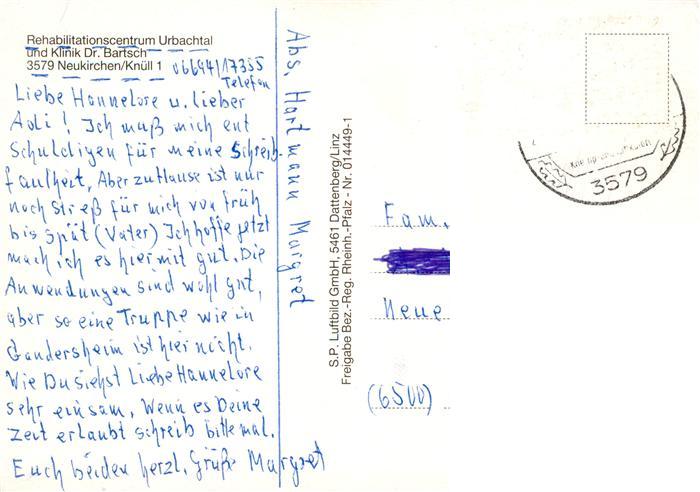 Rehabilitationscentrum Urbachtal
und Klinik Dr. Bartsch
3579 Neukirchen/Knüll 1 06694/17355
Telefon
Liebe Hannelore u. lieber
Adi! Ich muß mich ent
Schuldigen für meine Schreib
faulheit, Aber zuHause ist nur
noch Streß für mich von früh
bis spät (Vater) Ich hoffe jetzt
mach ich es hiermit gut. Die
Anwendungen sind wohl gut,
aber so eine Truppe wie in
Gandersheim ist hier nicht.
Wie Du siehst Liebe Hannelore
sehr einsam, Wenn es Deine
Zeit erlaubt schreib bitte mal.
Euch beiden herzl. Grüße Margret
Abs. Hartmann Margret
S.P. Luftbild GmbH, 5461 Dattenberg/Linz
Freigabe Bez.-Reg. Rheinh.-Pfalz - Nr. 014449-1
Fam.
Neue
(6500)
3579